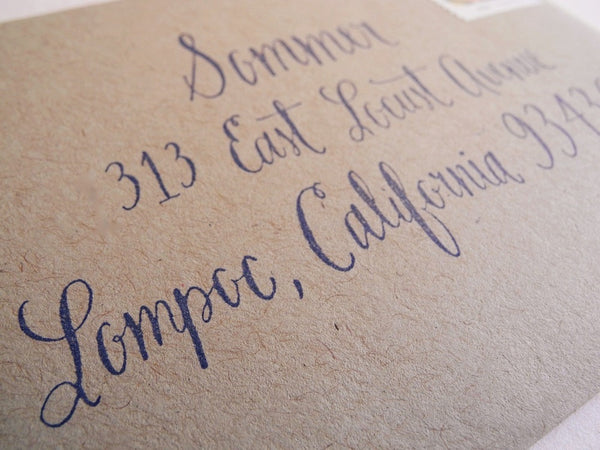 Sommer
313 East Locust Avenue
Lompoc, California 9343